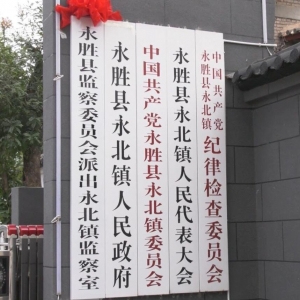 中国共产党
永胜县永北镇
纪律检查委员会
永胜县永北镇人民代表大会
中国共产党永胜县永北镇委员会
永胜县永北镇人民政府
永胜县监察委员会派出永北镇监察室